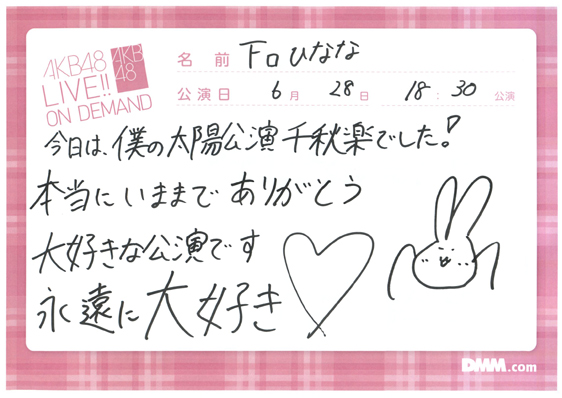 AKB48
LIVE!!
ON DEMAND
AKB
48
名前 下口ひなな
公演日 6月 28日 18:30 公演
今日は、僕の太陽公演千秋楽でした!
本当にいままで ありがとう
大好きな公演です
永遠に大好き
DMM.com